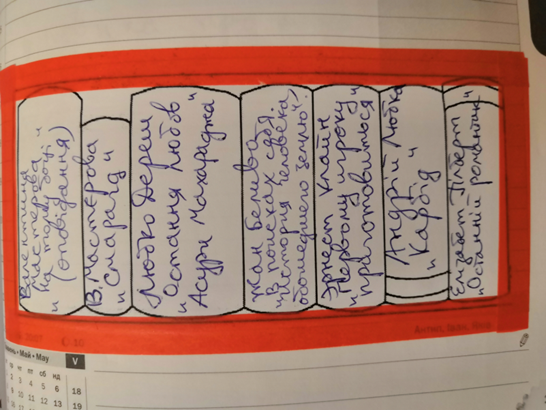 Валентина
Мастєрова
"На тому боці"
(оповідання)
В. Мастєрова
"Смарагд"
Любко Дереш
Остання любов
"Асури Махараджа"
Жан Беливо
"В поисках себя.
История человека,
обошедшего землю".
Эрнест Клайн
"Первому игроку
приготовиться"
Андрій Любка
"Карбід"
Елізабет Гілберт
"Останній романтик"
• Май • May V
чт пт сб нд
3 4 5 6 18
9 10 11 12 13 19